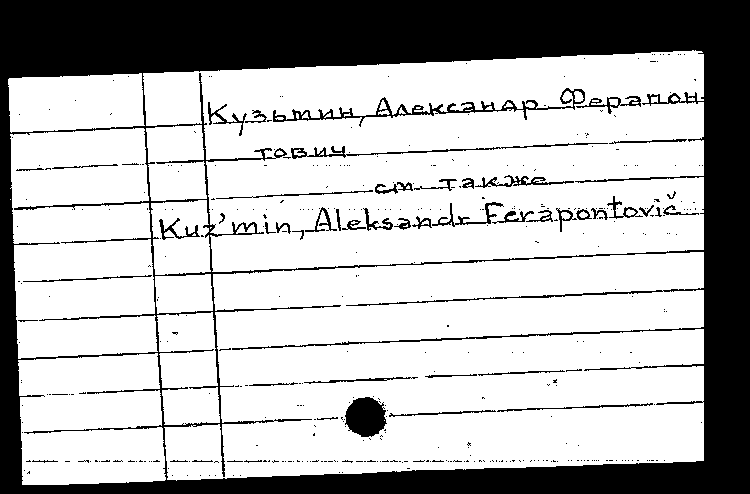 Кузьмин, Александр Ферапон-
тович
см. также
Kuz'min, Aleksandr Ferapontovič